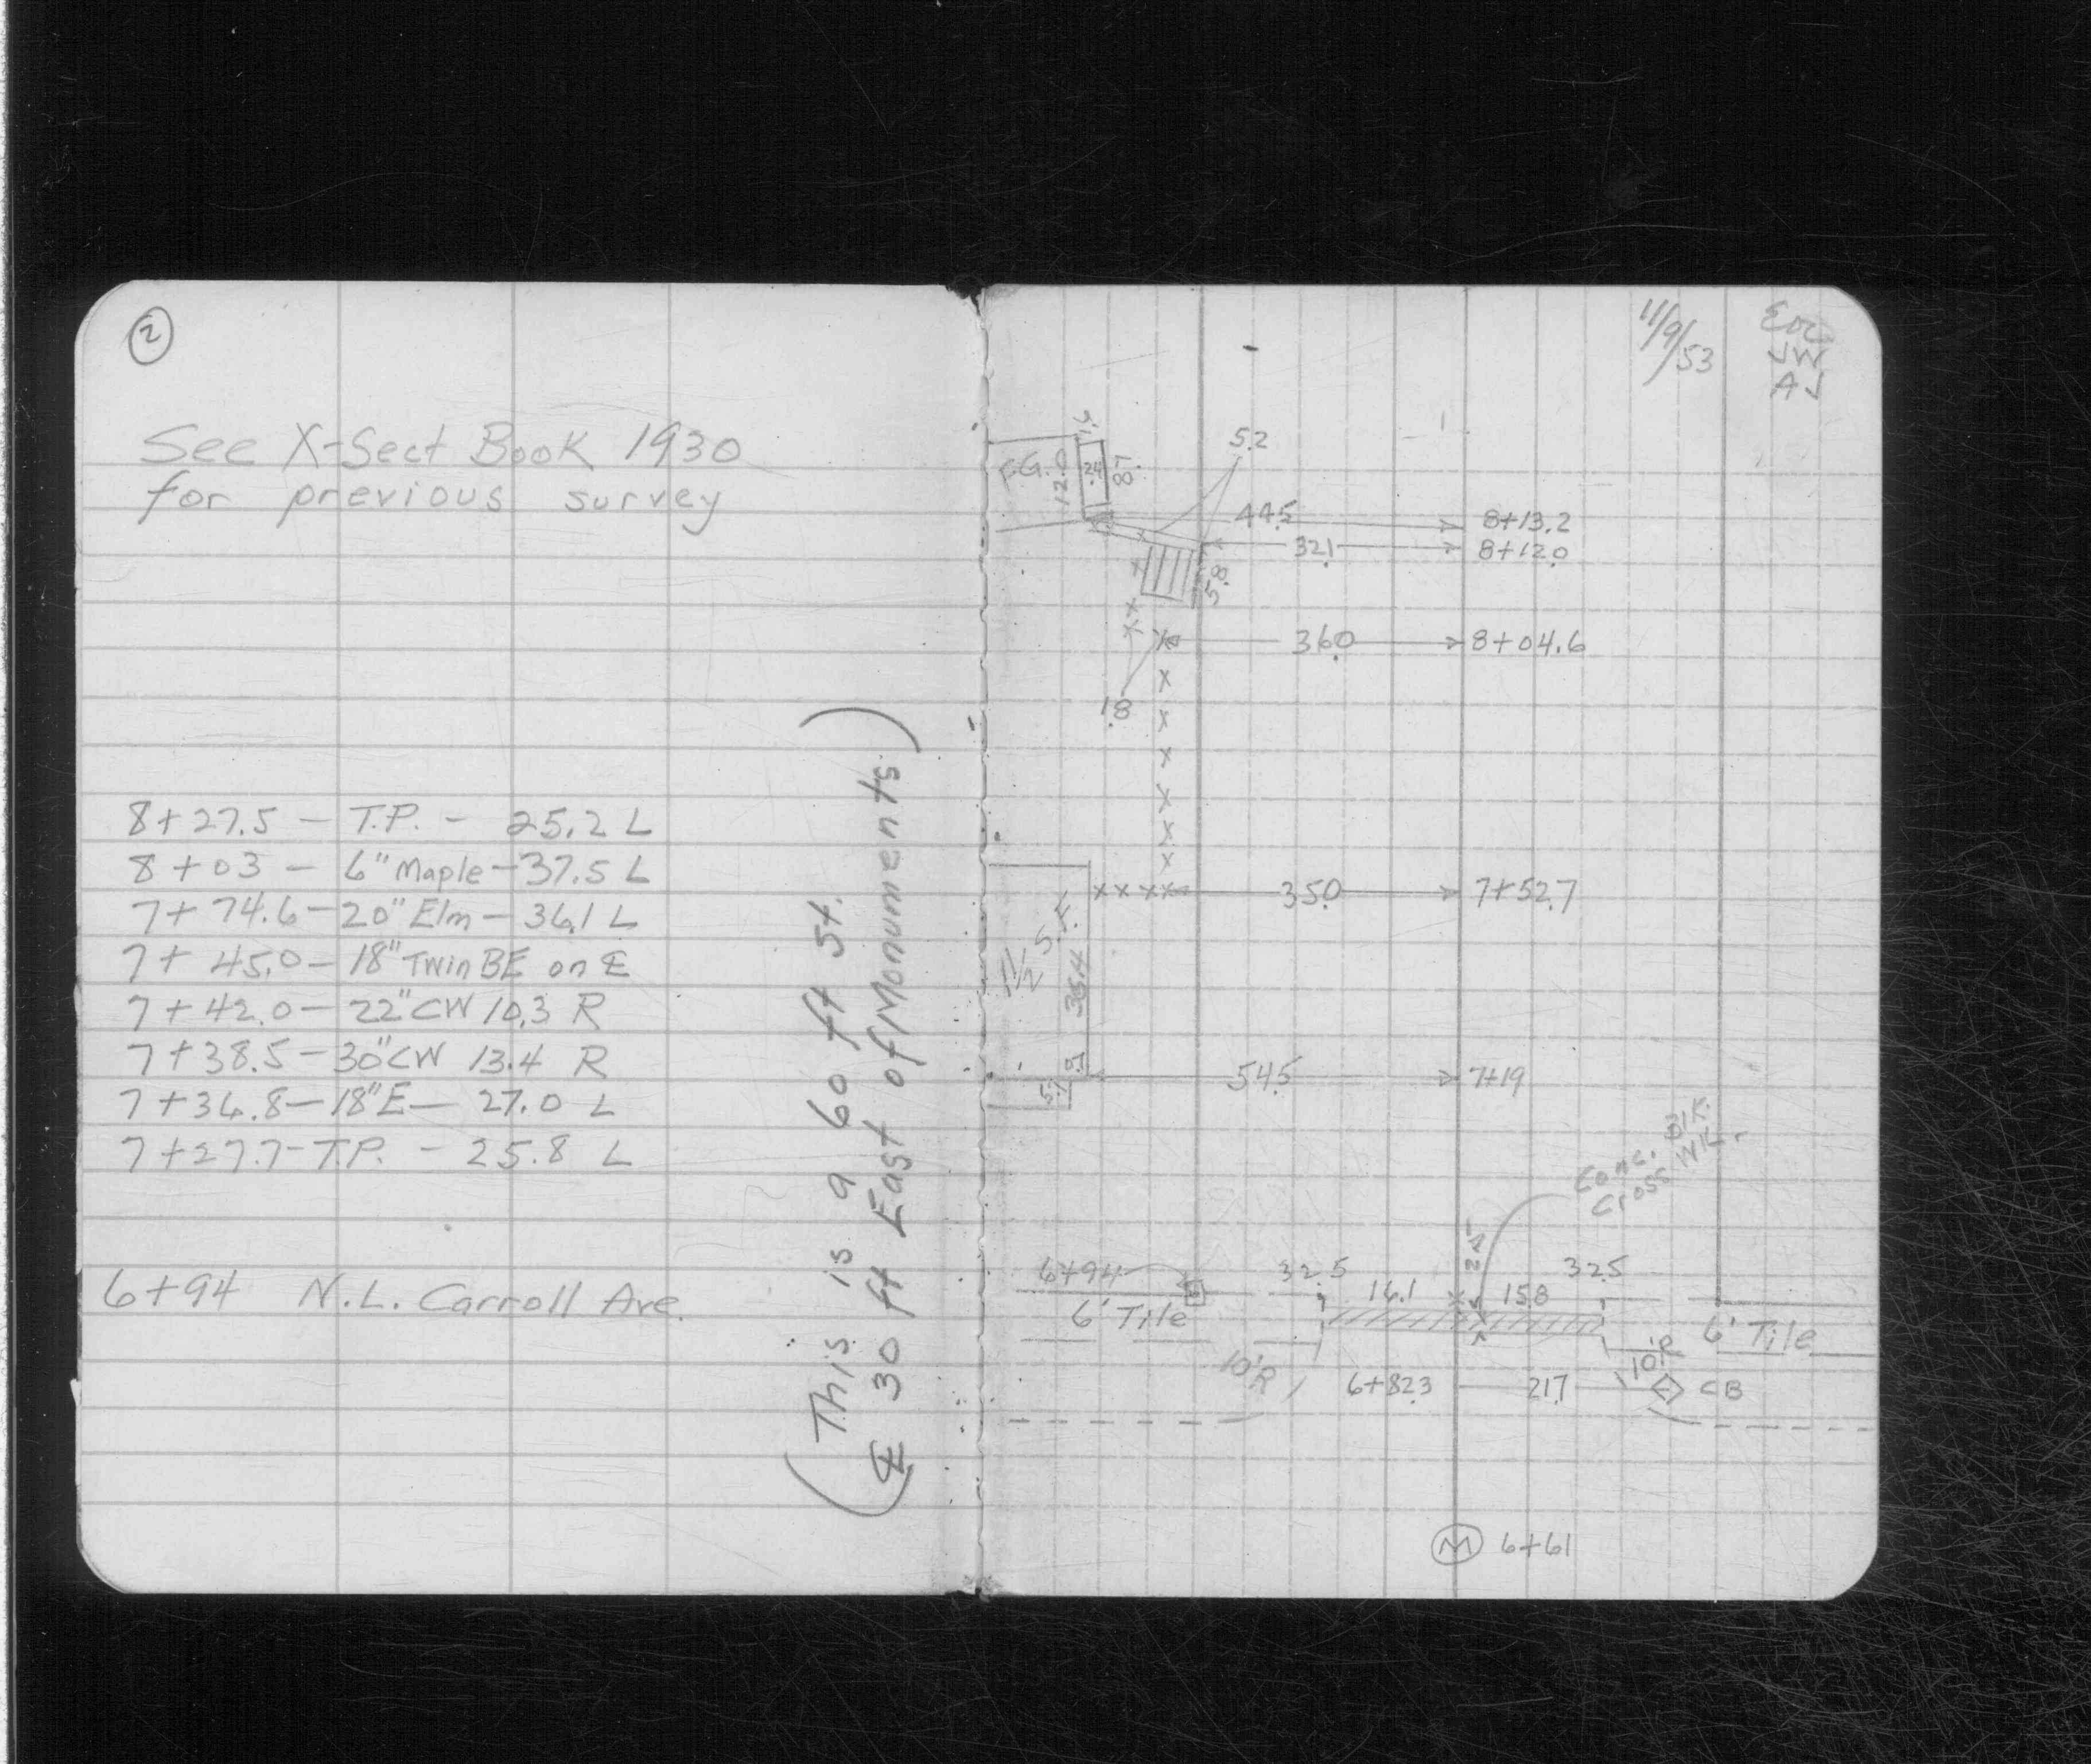 2
See X-Sect Book 1930
for previous survey
8+27.5 - T.P. - 25.2 L
8+03 - 6" Maple - 37.5 L
7+74.6 - 20" Elm - 36.1 L
7+45.0 - 18" Twin BE on ℄
7+42.0 - 22" CW 10.3 R
7+38.5 - 30" CW 13.4 R
7+36.8 - 18" E - 27.0 L
7+27.7 - T.P. - 25.8 L
6+94 N.L. Carroll Ave.
(This is a 60 ft St.
℄ 30 ft East of Monuments)
11/9/53
JW
AJ
5.2
12.0
8.7
44.5 8+13.2
32.1 8+12.0
5.8
36.0 8+04.6
1.8
35.0 7+52.7
1 1/2 S.F.
36.4
54.5 7+19
5.1
Conc. Blk.
Cross Wk.
6+94
32.5
16.1
15.8
32.5
6' Tile
6' Tile
10'R
10'R
6+82.3
21.7
CB
M 6+61